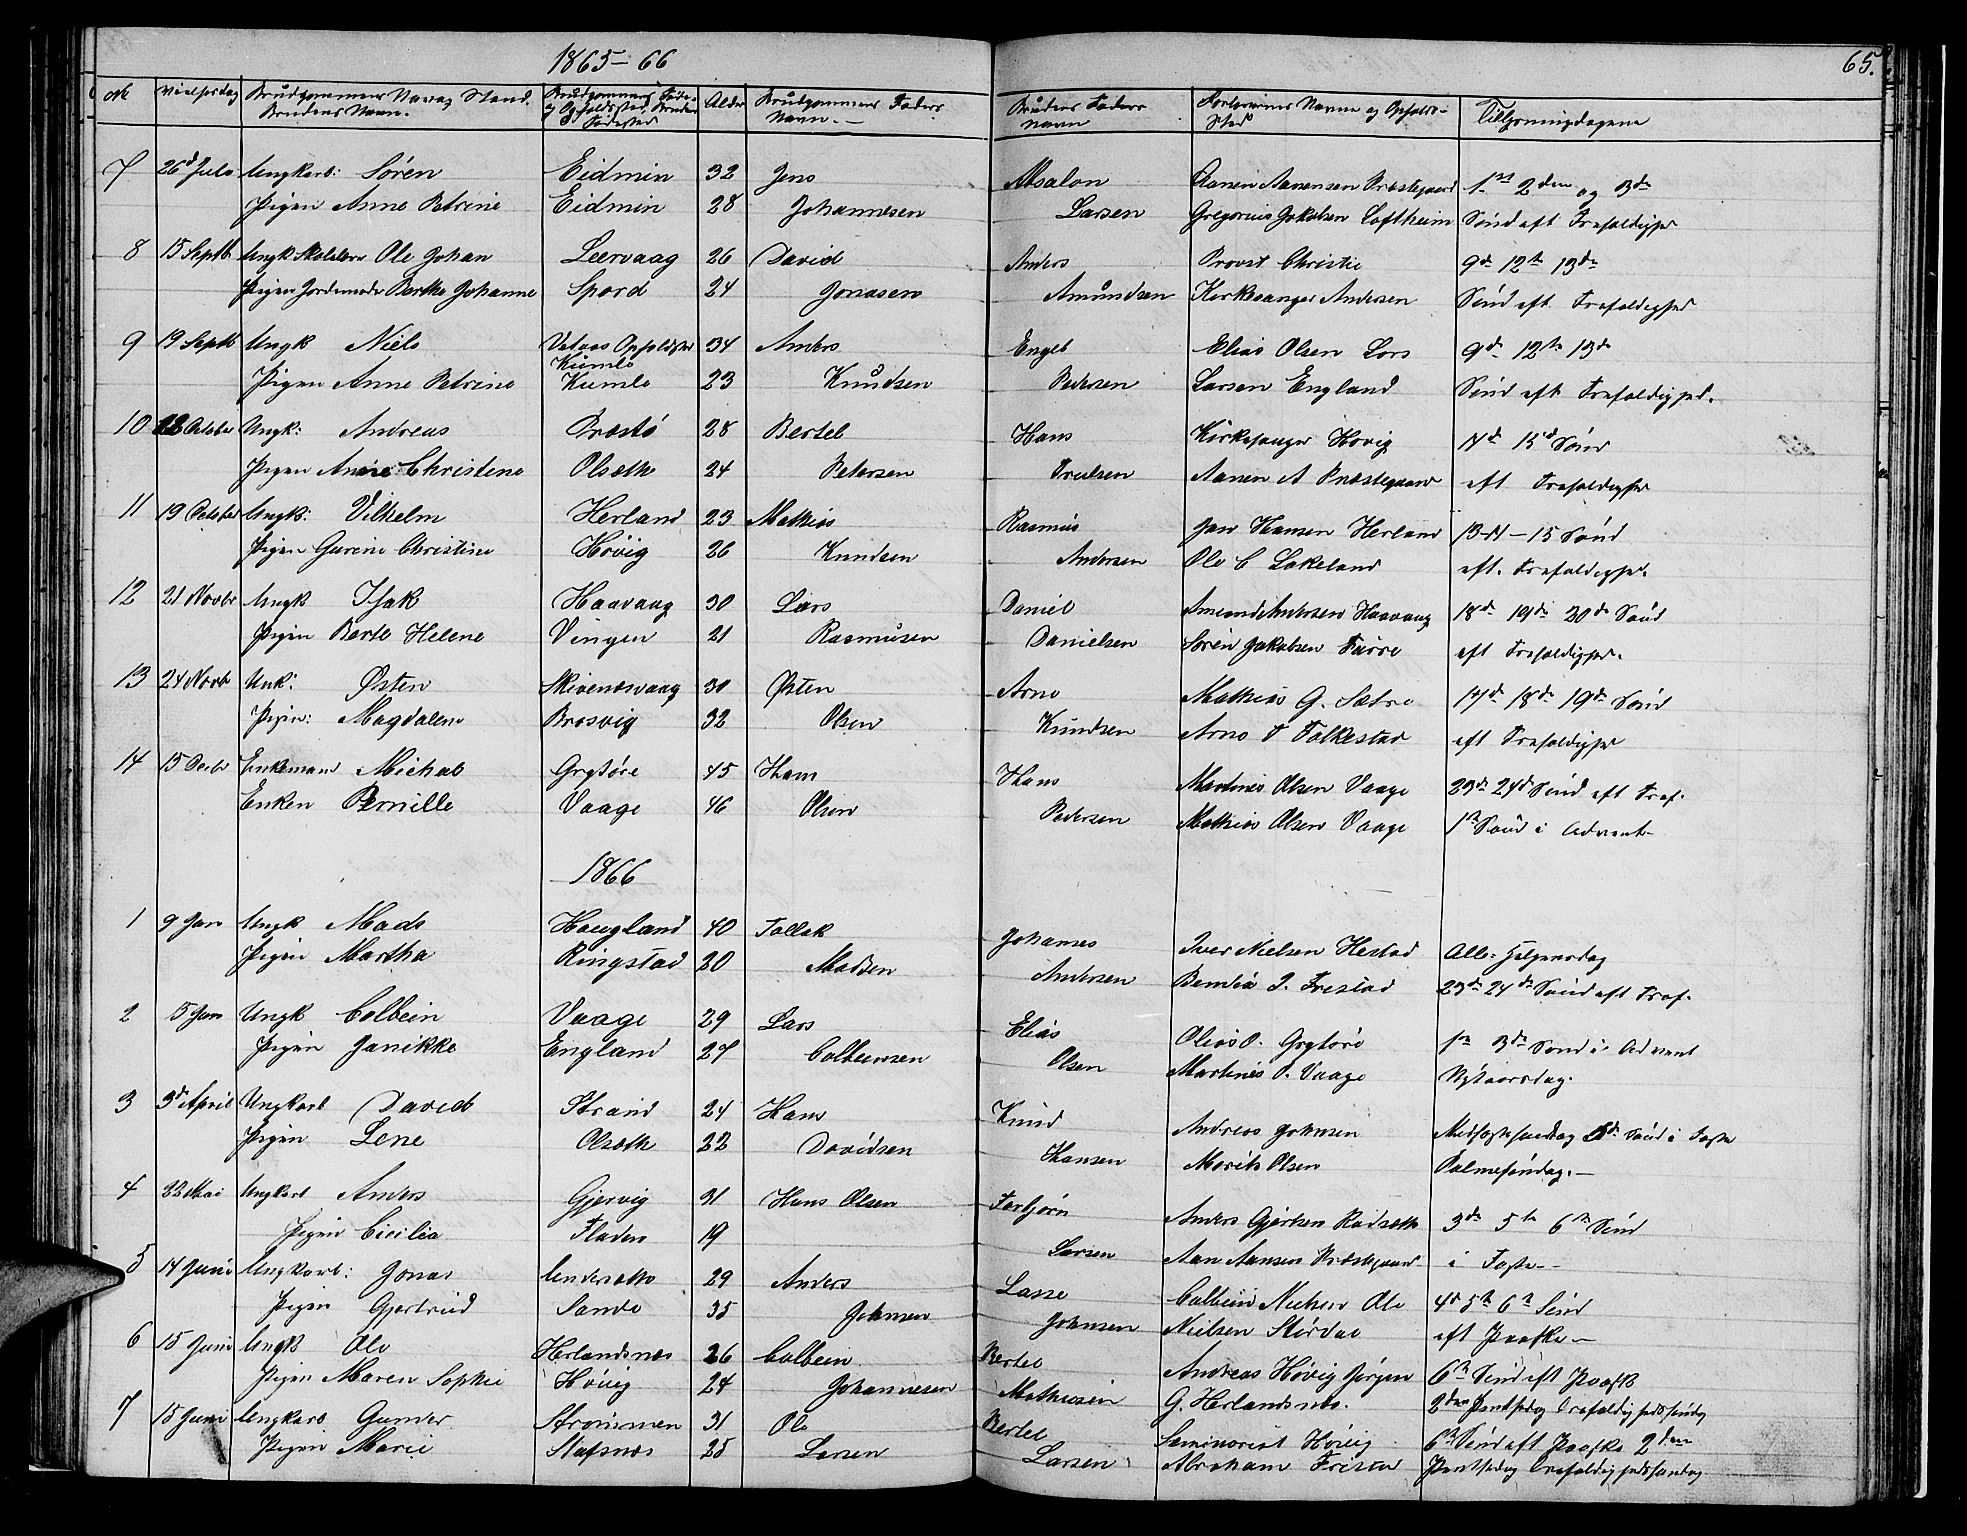 1865-66
65.
No Vielsesdag Brudgommens Navn og Stand. Brudens Navn. Brudgommens Føde- og Opholdssted Brudens Fødested Alder Brudgommens Faders Navn.- Brudens Faders Navn Forlovernes Navne og Opholds-Sted Tillysningsdagene
7 26d Juli Ungkarl: Søren Eidmin 32 Jens Absalon Aanen Aanensen Præstegaard 1ste 2den og 3die
Pigen Anne Petrine Eidmin 28 Johannesen Larsen Gregorius Jakobsen Loftheim Sønd eft Trefoldighed
8 15 Septb Ungk Skolelærer Ole Johan Leervaag 26 David Anders Provst Christie 9de 12te 13de
Pigen Jordemoder Berthe Johanne Spord 24 Jonasen Amundsen Kirkesanger Andersen Sønd eft Trefoldighed
9 19 Septb Ungk Niels Vataas Opholdsted Kumle 34 Anders Engel Elias Olsen Lors 9de 12te 13de
Pigen Anne Petrine Kumle 23 Knudsen Pedersen Larsen England Sønd eft Trefoldighed.
10 October Ungk: Andreas Præstø 28 Bertel Hans Kirkesanger Høvig 14d 15d Sønd
Pigen Anne Christine Olsæth 24 Petersen Aanen A Præstegaard eft Trefoldighed
11 19 October Ungk: Vilhelm Herland 23 Mathias Rasmus Hansen Herland 13-14-15 Sønd
Pigen Gurine Christine Høvig 26 Knudsen Andersen Ole C Lakeland eft. Trefoldighed.
12 21 Novbr Ungk Isak Haavaag 30 Lars Daniel Amund Andersen Haavaag 18de 19de 20de Sønd
Pigen Berte Helene Vingen 21 Rasmusen Danielsen Søren Jakobsen Furre eft Trefoldighed.
13 24 Novbr Unk: Østen Skivenesvaag 30 Østen Arne Mathias G. Sætre 17de 18de 19de Sønd
Pigen: Magdalene Brosvig 32 Olsen Knudsen Arne T Folkestad eft Trefoldighed
14 15 Decbr Enkemand Michal Grytøre 45 Hans Hans Martinus Olsen Vaage 23de 24d Sønd eft Tref.
Enken Pernille Vaage 46 Olsen Pedersen Mathias Olsen Vaage 1ste Sønd i Advent-
1866
1 9 Jan Ungk Mads Haugland 40 Tollak Johanes Iver Nielsen Hestad Alle-Helgensdag
Pigen Martha Ringstad 20 Madsen Andersen J. Frestad 23de 24de Sønd eft Tref.
2 5 Jan Ungk Colbein Vaage 29 Lars Elias Olias O. Grytøre 1ste 3de Sønd i Advent
Pigen Janikke England 27 Colbeinsen Olsen Martinus O. Vaage Nytaarsdag.
3 3d April Ungkarl David Strand 24 Hans Knud Andreas Johnsen Midfastesøndag 5de Sønd i Faste
Pigen Lene Olsæth 22 Davidsen Hansen Morits Olsen Palmesøndag.-
4 22 Mai Ungkarl Anders Gjervig 31 Hans Olsen Torbjørn Anders Rødsæth 3de 5te 6te Sønd
Pigen Cicilia Fladen 19 Larsen Aan Aansen Præstegaard i Faste--
5 14 Juni Ungkarl: Jonas Undersæth 29 Anders Lasse Colbein Nielsen Ole 4d 5te 6te Sønd
Pigen Gjertrud Sande 35 Johnsen Johnsen Nielsen Størdal eft Paaske-
6 15 Juni Ungk Ole Herlandsnæs 26 Colbein Bertel Andreas Høvig Jørgen 6te Sønd eft Paaske
Pigen Maren Sophie Høvig 24 Johannesen Mathiasen G. Herlandsnæs. 2den Pintsedag Trefoldighedssøndag
7 15 Juni Ungkarl Gunder Strømmen 31 Ole Bertel Seminarist Høvig 6te Sønd eft Paaske 2den
Pigen Marie Stafsnæs 25 Larsen Larsen Abraham Frestad Pintsedag Trefoldighedssøndag